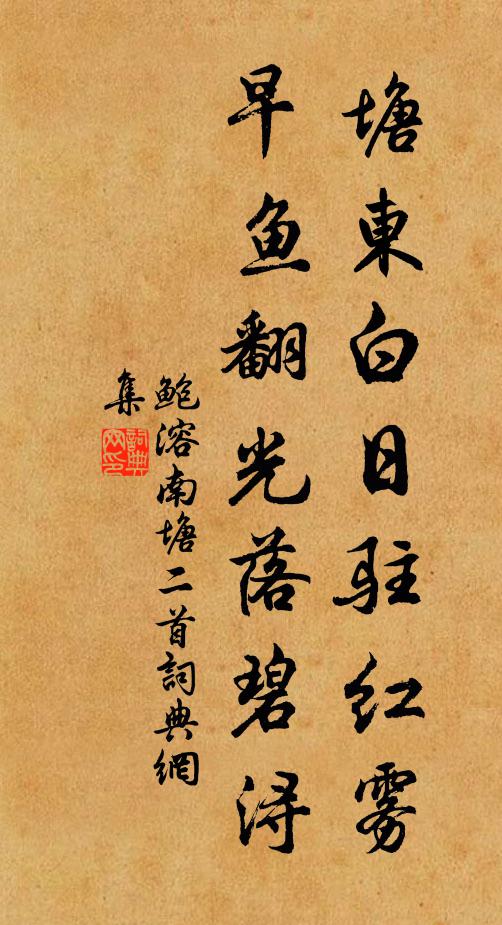 塘東白日駐红雾
早鱼翻光落碧浔
鲍溶南塘二首詞典網
集
詞典網印